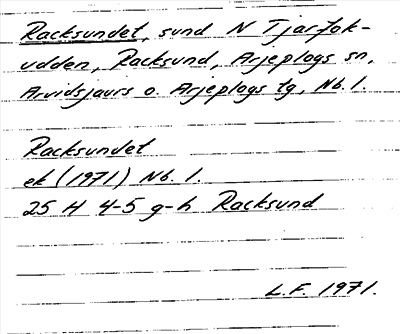 Racksundet, sund N Tjartok-
udden, Racksund, Arjeplogs sn,
Arvidsjaurs o. Arjeplogs tg, Nb. l.
Racksundet
ek (1971) Nb. l.
25 H 4-5 g-h Racksund
L.F. 1971.